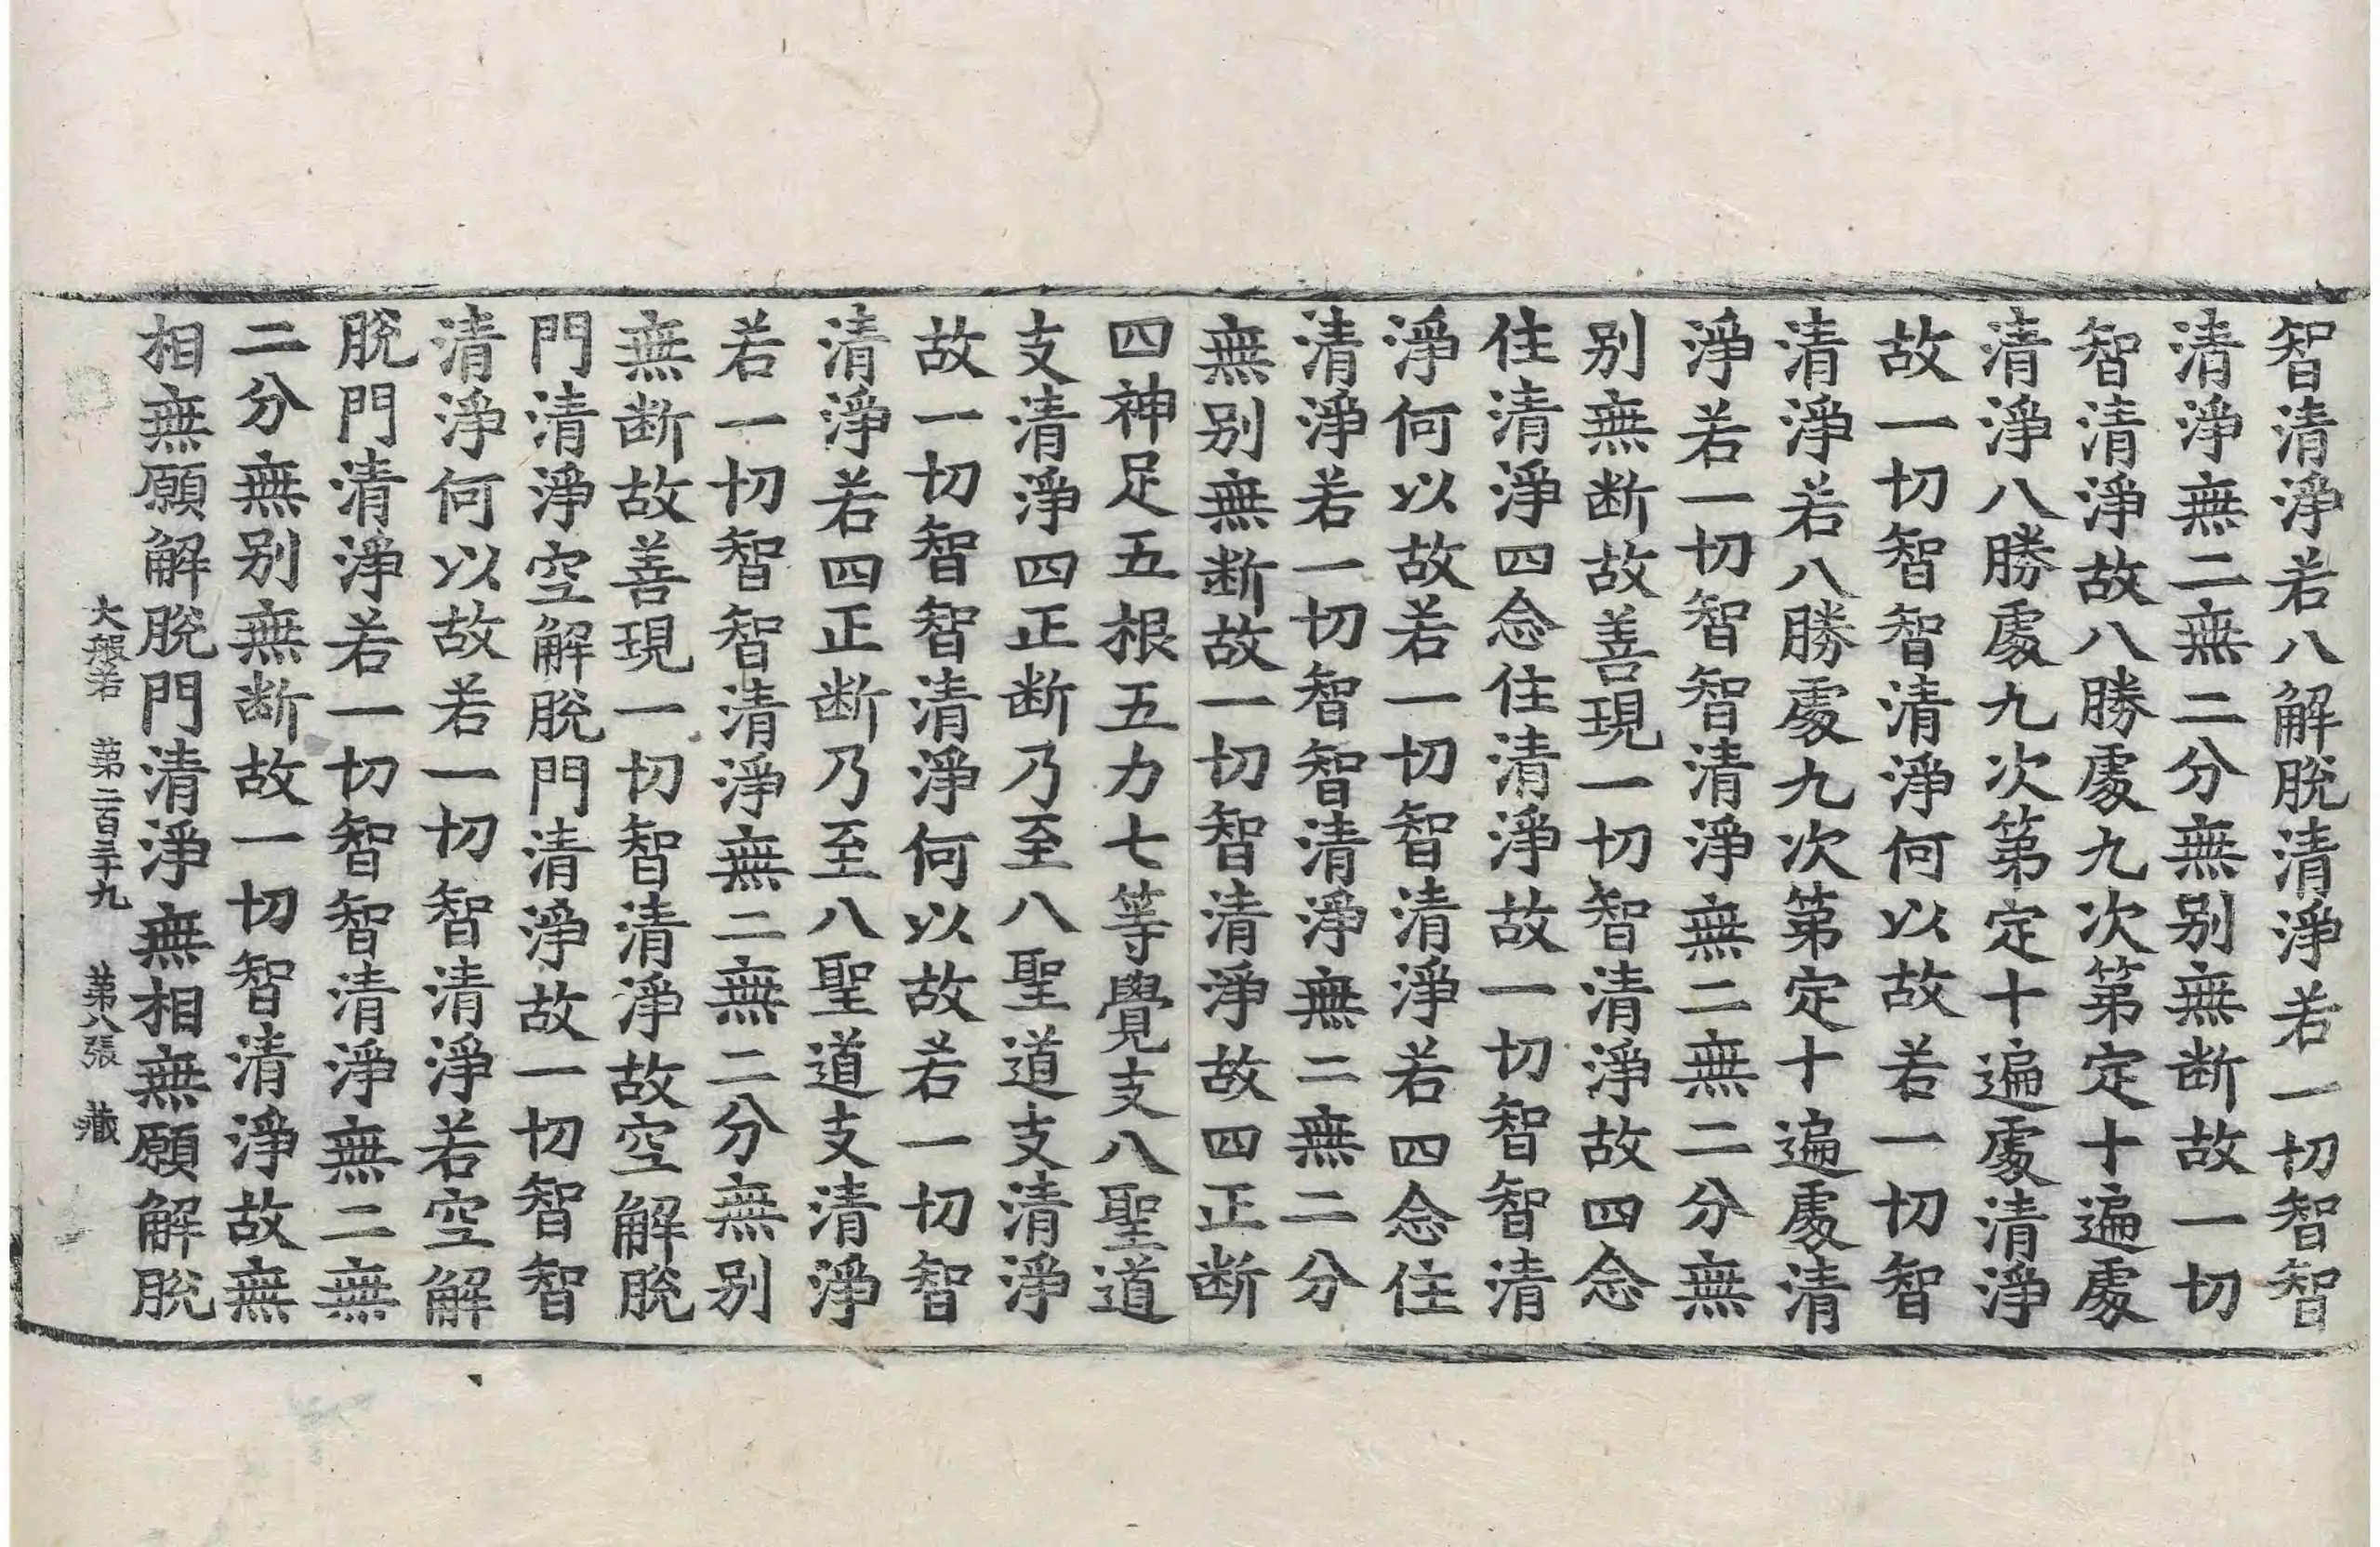 智清淨若八解脫清淨若一切智智
清淨無二無二分無別無断故一切
智清淨故八勝處九次第定十遍處
清淨八勝處九次第定十遍處清淨
故一切智智清淨何以故若一切智
清淨若八勝處九次第定十遍處清
淨若一切智智清淨無二無二分無
別無断故善現一切智清淨故四念
住清淨四念住清淨故一切智智清
淨何以故若一切智清淨若四念住
清淨若一切智智清淨無二無二分
無別無断故一切智清淨故四正断
四神足五根五力七等覺支八聖道
支清淨四正断乃至八聖道支清淨
故一切智智清淨何以故若一切智
清淨若四正断乃至八聖道支清淨
若一切智智清淨無二無二分無別
無断故善現一切智清淨故空解脫
門清淨空解脫門清淨故一切智智
清淨何以故若一切智清淨若空解
脫門清淨若一切智智清淨無二無
二分無別無断故一切智清淨故無
相無願解脫門清淨無相無願解脫
大般若 第二百三十九 第八張 藏